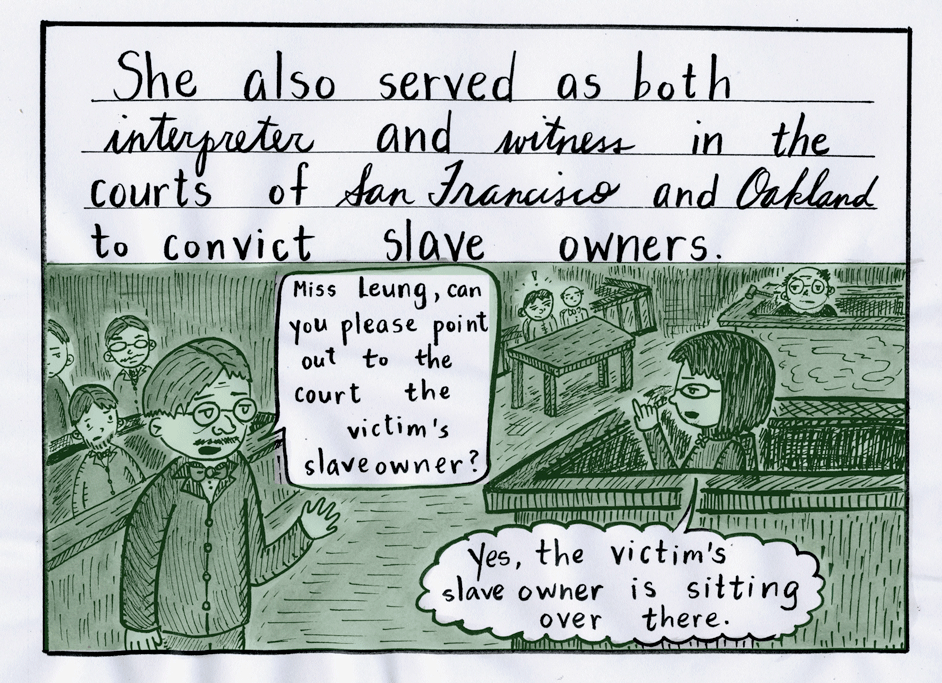 She also served as both
interpreter and witness in the
courts of San Francisco and Oakland
to convict slave owners.
Miss Leung, can
you please point
out to the
court the
victim's
slaveowner?
!
Yes, the victim's
slave owner is sitting
over there.